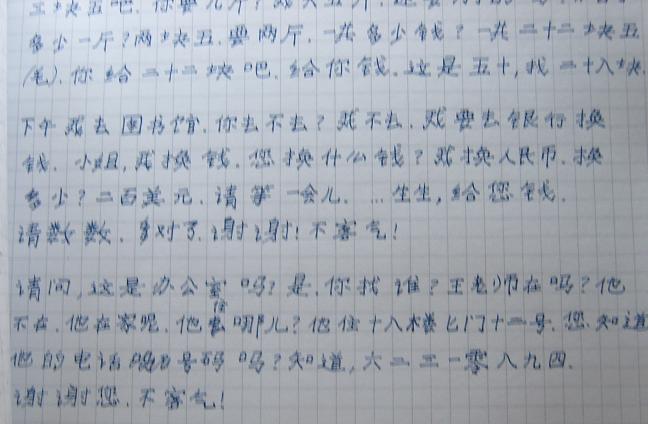 三块五吧. 你要几斤? 我买五斤. 还要
多少一斤? 两块五. 要两斤. 一共多少钱? 一共二十二块五
(毛). 你给二十二块吧. 给你钱. 这是五十, 找二十八块.
下午我去图书馆. 你去不去? 我不去. 我要去银行换
钱. 小姐, 我换钱. 您换什么钱? 我换人民币. 换
多少? 二百美元. 请等一会儿. ... 先生, 给您钱.
请数数. 对了. 谢谢! 不客气!
请问, 这是办公室吗? 是. 你找谁? 王老师在吗? 他
不在. 他在家呢. 他住哪儿? 他住十八楼七门十二号. 您知道
他的电话号码吗? 知道, 六二三一零八九四.
谢谢您. 不客气!